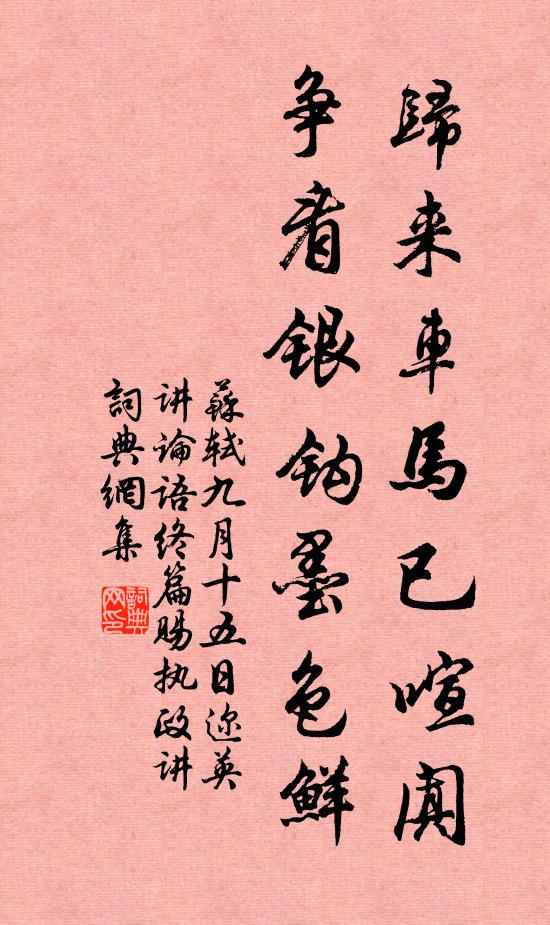 歸来車馬已喧闐
争看銀鈎墨色鮮
蘇軾九月十五日迩英
讲論語终篇賜执政讲
詞典網集
詞典网印